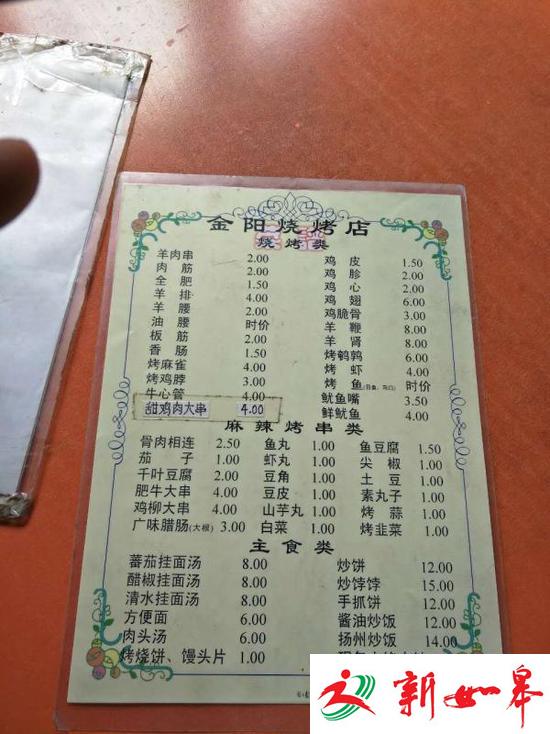 金阳烧烤店
烧烤类
羊肉串 2.00 鸡皮 1.50
肉筋 2.00 鸡胗 2.00
全肥 1.50 鸡心 2.00
羊排 4.00 鸡翅 6.00
羊腰 2.00 鸡脆骨 3.00
油腰 时价 羊鞭 8.00
板筋 2.00 羊肾 8.00
香肠 1.50 烤鹌鹑 6.00
烤麻雀 4.00 烤虾 4.00
烤鸡脖 3.00 烤鱼 时价
牛心管 2.00 鱿鱼嘴 3.50
甜鸡肉大串 4.00 鲜鱿鱼 4.00
麻辣烤串类
骨肉相连 2.50 鱼丸 1.00 鱼豆腐 1.50
茄子 1.00 虾丸 1.00 尖椒 1.00
千叶豆腐 2.00 豆角 1.00 土豆 1.00
肥牛大串 4.00 豆皮 1.00 素丸子 1.00
鸡柳大串 4.00 山芋丸 1.00 烤蒜 1.00
广味腊肠(大根) 3.00 白菜 1.00 烤韭菜 1.00
主食类
蕃茄挂面汤 8.00 炒饼 12.00
醋椒挂面汤 8.00 炒饽饽 15.00
清水挂面汤 8.00 手抓饼 12.00
方便面 6.00 酱油炒饭 12.00
肉头汤 6.00 扬州炒饭 14.00
烤烧饼、馒头片 1.00
新如皋